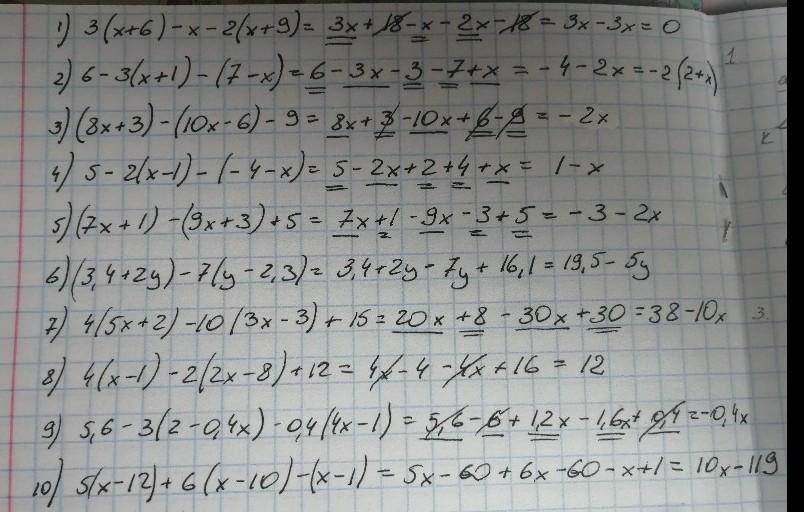 1) 3(x+6)-x-2(x+9)= 3x+18-x-2x-18= 3x-3x=0
2) 6-3(x+1)-(7-x)=6-3x-3-7+x = -4-2x=-2(2+x)
3) (8x+3)-(10x-6)-9= 8x+3-10x+6-9= -2x
4) 5-2(x-1)-(-4-x)= 5-2x+2+4+x= 1-x
5) (7x+1)-(9x+3)+5= 7x+1-9x-3+5= -3-2x
6) (3,4+2y)-7(y-2,3)= 3,4+2y-7y+16,1=19,5-5y
7) 4(5x+2)-10(3x-3)+15=20x+8-30x+30=38-10x
8) 4(x-1)-2(2x-8)+12= 4x-4-4x+16= 12
9) 5,6-3(2-0,4x)-0,4(4x-1)= 5,6-6+1,2x-1,6x+0,4=-0,4x
10) 5(x-12)+6(x-10)-(x-1)= 5x-60+6x-60-x+1= 10x-119